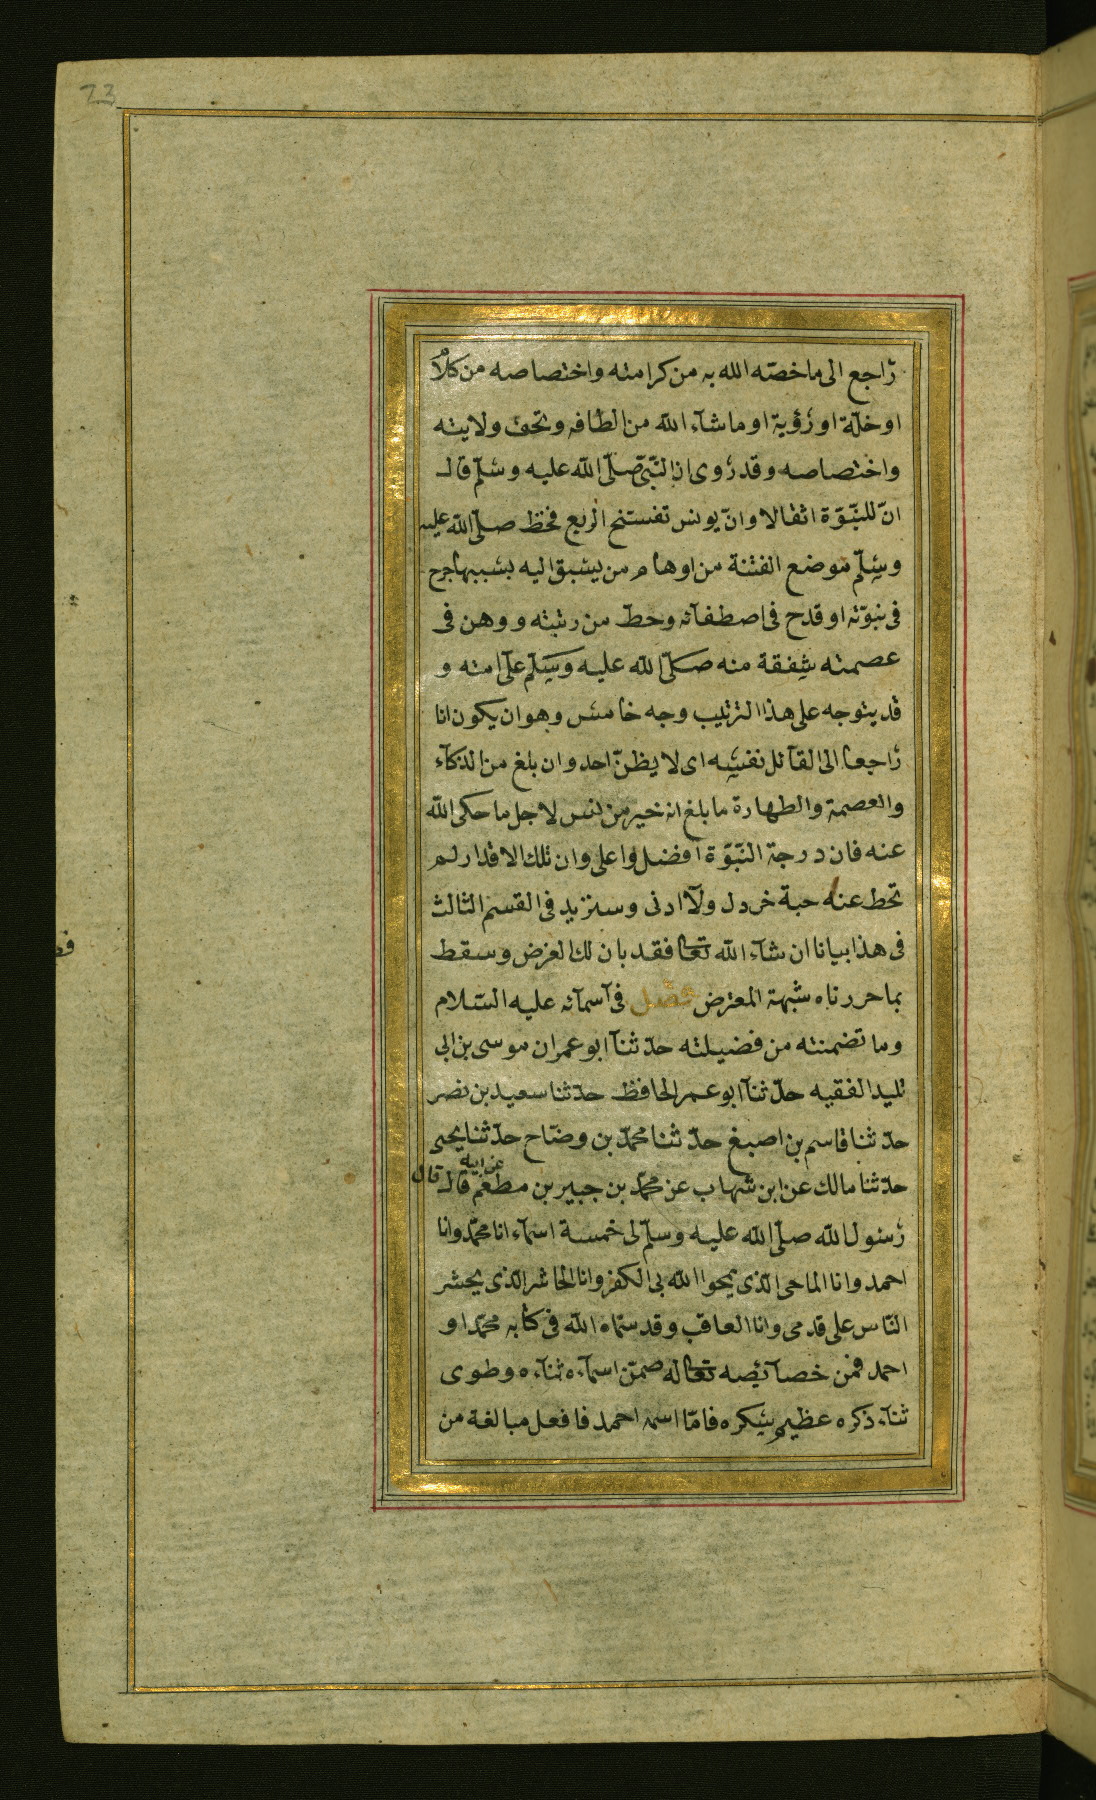 73
راجع الى ما خصّه الله به من كرامته واختصاصه من كلام
او خلّة او رؤية او ما شآء الله من الطافه وتحف ولايته
واختصاصه وقد روى ان النّبىّ صلّى الله عليه وسلّم قال
انّ للنّبوّة اثقالا وانّ يونس تفسّخ الربع فحفظ صلّى الله عليه
وسلّم موضع الفتنة من اوهام من يسبق اليه بسببها جرح
فى نبوّته او قدح فى اصطفآئه وحطّ من رتبته ووهن فى
عصمته شفقة منه صلّى الله عليه وسلّم على امته و
قد يتوجه على هذا الترتيب وجه خامس وهو ان يكون انا
راجعا الى القآئل نفسه اى لا يظنّ احد وان بلغ من الذكآء
والعصمة والطهارة ما بلغ انه خير من يونس لاجل ما حكى الله
عنه فان درجة النّبوّة افضل واعلى وان تلك الاقدار لم
تحط عنه حبة خردل ولآ ادنى وسنزيد فى القسم الثالث
فى هذا بيانا ان شآء الله تعا فقد بان لك الغرض وسقط
بما حررناه شبهة المعترض فصل فى آسمآئه عليه السّلام
وما تضمنته من فضيلته حدّثنآ ابو عمران موسى بن ابى
تليد الفقيه حدّثنآ ابو عمر الحافظ حدّثنا سعيد بن نصر
حدّثنا قاسم بن اصبغ حدّثنا محمّد بن وضّاح حدّثنا يحيى
حدّثنا مالك عن ابن شهاب عن محمّد بن جبير بن مطعم عن ابيه قال قال
رسول الله صلّى الله عليه وسلّم لى خمسة اسمآء انا محمّد وانا
احمد وانا الماحى الّذى يمحوا الله بى الكفر وانا الحاشر الّذى يحشر
النّاس على قدمى وانا العاقب وقد سمّاه الله فى كتابه محمّدا و
احمد فمن خصآئصه تعا له ضمّن اسمآءه ثنآءه وطوى
ثنآء ذكره عظيم شكره فامّا اسمه احمد فافعل مبالغة من